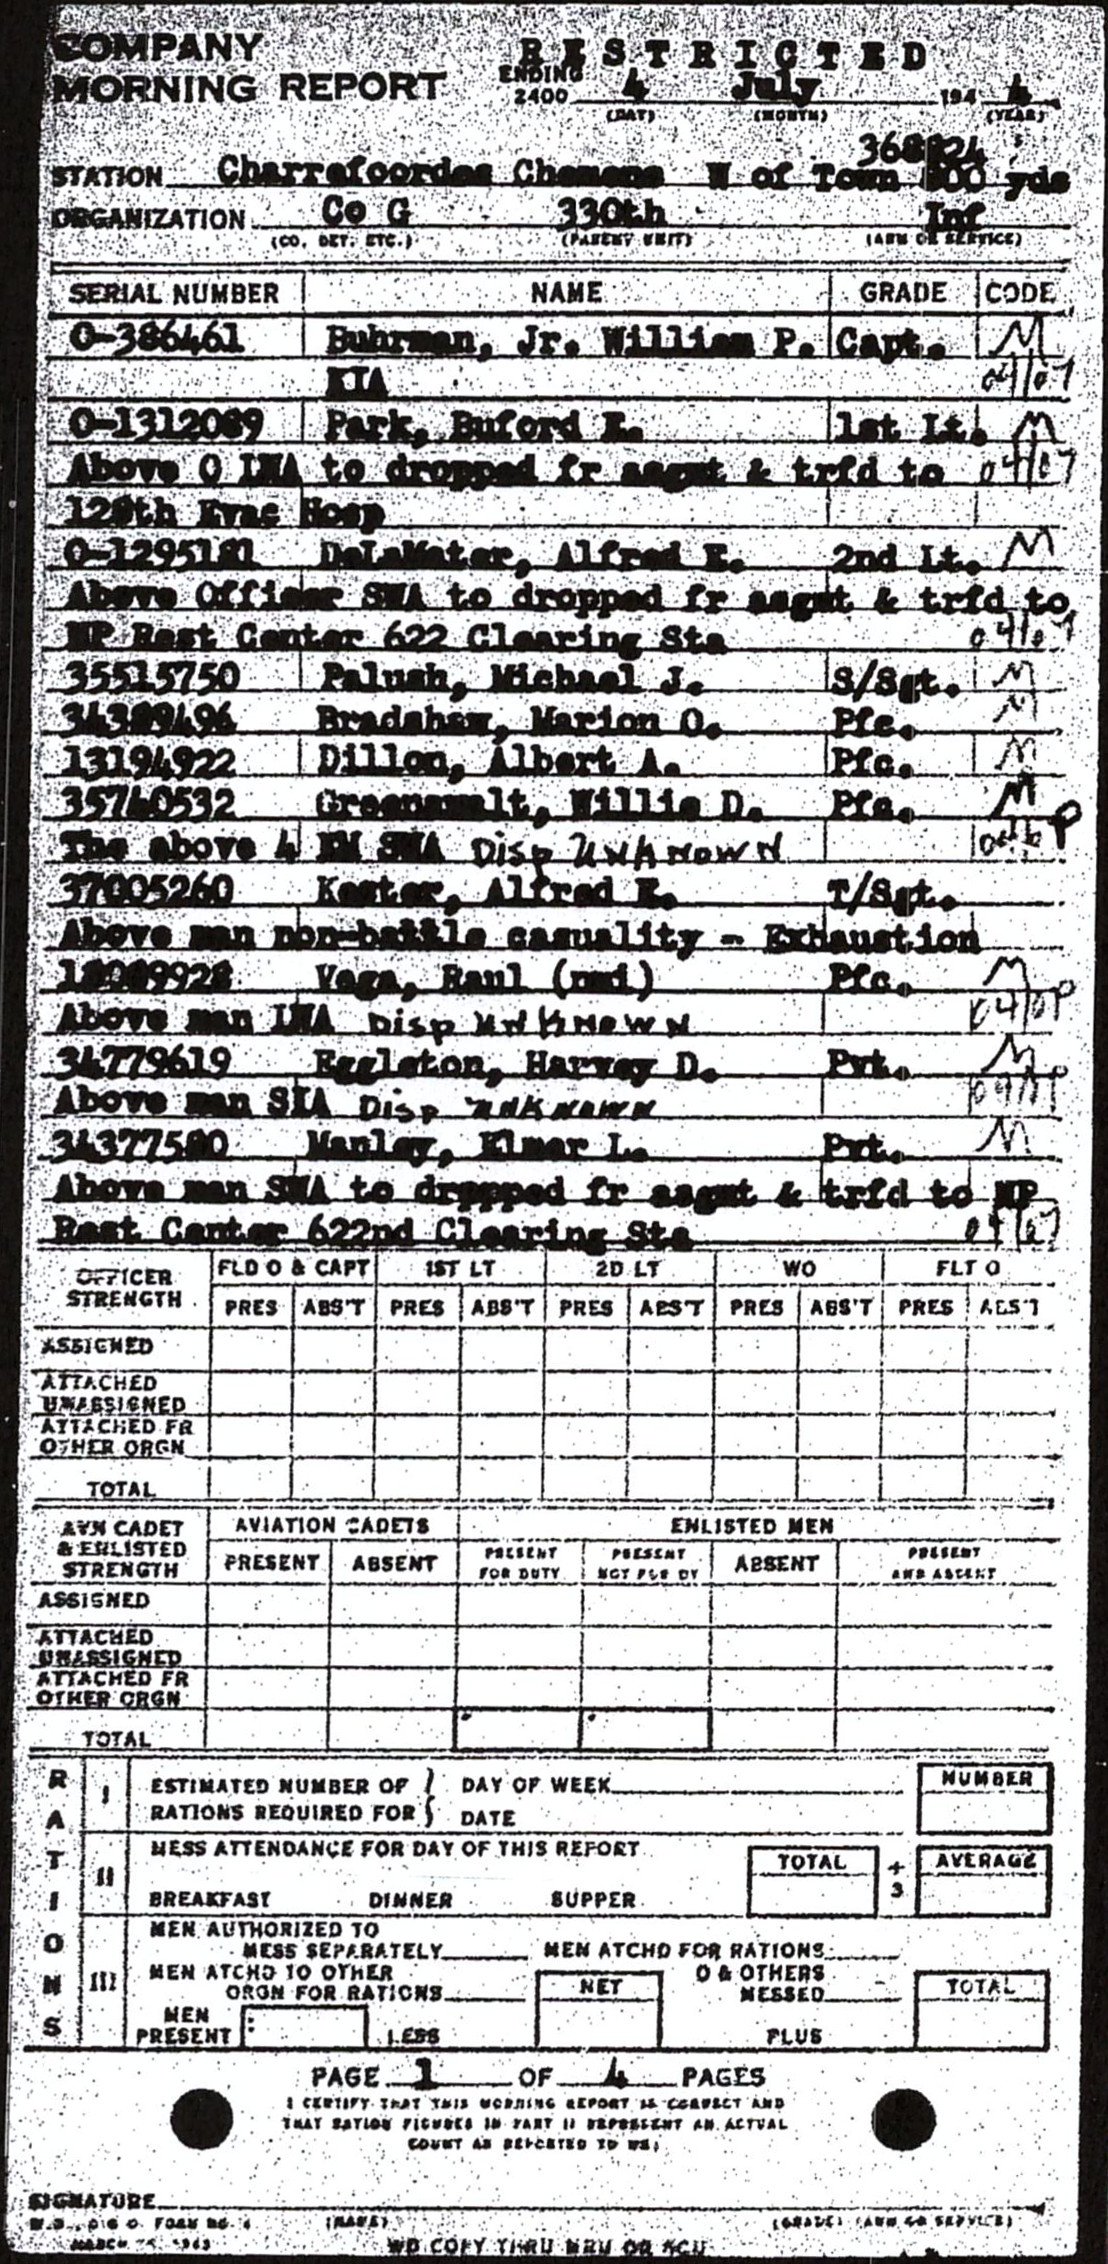 COMPANY
MORNING REPORT
RESTRICTED
ENDING
2400 4 July 194 4
(DAY) (MONTH) (YEAR)
STATION Charrafcordes Chemens N of Town 500 yds
ORGANIZATION Co G 330th Inf
(CO. DET. ETC.) (PARENT UNIT) (ARM OR SERVICE)
SERIAL NUMBER NAME GRADE CODE
O-386461 Buhrman, Jr. William P. Capt. M
KIA 04/07
O-1312089 Park, Buford E. 1st Lt. M
Above O LWA to dropped fr asgmt & trfd to 04/07
128th Evac Hosp
O-1295181 DeLaMater, Alfred E. 2nd Lt. M
Above Officer SWA to dropped fr asgmt & trfd to
NP Rest Center 622 Clearing Sta 04/07
35515750 Palush, Michael J. S/Sgt. M
34389496 Bradshaw, Marion O. Pfc. M
13194922 Dillon, Albert A. Pfc. M
35740532 Greenawalt, Willie D. Pfc. M
The above 4 EM SWA Disp UNKNOWN
37005260 Kester, Alfred E. T/Sgt.
Above man non-battle casuality - Exhaustion
18089928 Vega, Raul (nmi) Pfc. M
Above man LWA Disp UNKNOWN
34779619 Eggleton, Harvey D. Pvt. M
Above man SIA Disp UNKNOWN
34377580 Manley, Elmer L. Pvt. M
Above man SWA to drppped fr asgmt & trfd to NP
Rest Center 622nd Clearing Sta 04/07
OFFICER STRENGTH FLD O & CAPT 1ST LT 2D LT WO FLT O
PRES ABS'T PRES ABS'T PRES ABS'T PRES ABS'T PRES ABS'T
ASSIGNED
ATTACHED
UNASSIGNED
ATTACHED FR
OTHER ORGN
TOTAL
AVN CADET & ENLISTED STRENGTH AVIATION CADETS ENLISTED MEN
PRESENT ABSENT PRESENT FOR DUTY PRESENT NOT FOR DY ABSENT PRESENT AND ABSENT
ASSIGNED
ATTACHED
UNASSIGNED
ATTACHED FR
OTHER ORGN
TOTAL
RATIONS
I ESTIMATED NUMBER OF } DAY OF WEEK NUMBER
RATIONS REQUIRED FOR } DATE
II MESS ATTENDANCE FOR DAY OF THIS REPORT TOTAL ÷ 3 AVERAGE
BREAKFAST DINNER SUPPER
III MEN AUTHORIZED TO
MESS SEPARATELY MEN ATCHD FOR RATIONS
MEN ATCHD TO OTHER O & OTHERS
ORGN FOR RATIONS NET MESSED TOTAL
MEN
PRESENT LESS PLUS
PAGE 1 OF 4 PAGES
I CERTIFY THAT THIS MORNING REPORT IS CORRECT AND
THAT RATION FIGURES IN PART II REPRESENT AN ACTUAL
COUNT AS REPORTED TO ME;
SIGNATURE
W.D., A.G.O. FORM NO. 1 (NAME) (GRADE) (ARM OR SERVICE)
MARCH 1943 WD COPY THRU MRU OR ACU